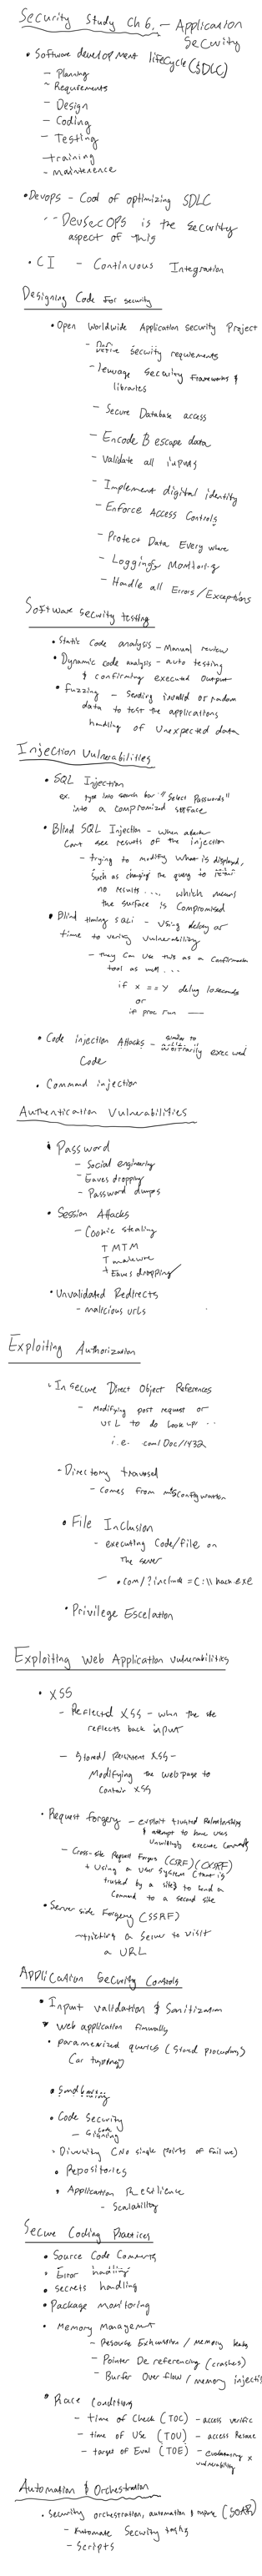 Security Study Ch 6. - Application
Security
• Software development lifecycle (SDLC)
- Planning
- Requirements
- Design
- Coding
- Testing
- training
- maintenence
• Devops - Goal of optimizing SDLC
-- DevSecOPS is the security
aspect of this
• CI - Continuous Integration
Designing Code for security
• Open Worldwide Application security Project
- Define security requirements
- leverage security frameworks &
libraries
- Secure Database access
- Encode & escape data
- Validate all inputs
- Implement digital identity
- Enforce Access Controls
- Protect Data Everywhere
- Logging & Monitoring
- Handle all Errors/Exceptions
Software security testing
• Static Code analysis - Manual review
• Dynamic code analysis - auto testing
& confirming executed output
• Fuzzing - Sending invalid or random
data to test the applications
handling of unexpected data
Injection Vulnerabilities
• SQL Injection
ex. type into search bar "Select Passwords"
into a compromized surface
• Blind SQL Injection - when attacker
Cant see results of the injection
- trying to modify what is displayed,
such as changing the query to return
no results .... which means
the surface is compromised
• Blind timing SQLi - Using delay or
time to verify vulnerability
- they can use this as a confirmation
tool as well...
if x == y delay 10seconds
or
if proc run
• Code injection Attacks - similar to
arbitrarily executed
Code
• Command injection
Authentication Vulnerabilities
• Password
- Social engineering
- Eaves dropping
- Password dumps
• Session Attacks
- Cookie stealing
+ MTM
+ malware
+ Eaves dropping
• Unvalidated Redirects
- malicious urls
Exploiting Authorization
- Insecure Direct Object References
- Modifying post request or
URL to do look up ..
i.e. com/Doc/1432
- Directory traversal
- comes from misconfiguration
• File Inclusion
- executing Code/file on
the server
- .com/?include=C:\\hack.exe
• Privilege Escelation
Exploiting Web Application Vulnerabilities
• XSS
- Reflected XSS - when the site
reflects back input
- Stored/Persistent XSS -
Modifying the webpage to
Contain XSS
• Request forgery - exploit trusted Relationships
& attempt to have users
Unwillingly execute Commands
- Cross-site Request Forgery (CSRF) (XSRF)
+ Using a user system (that is
trusted by a site) to send a
Command to a second site
• Server side Forgery (SSRF)
- tricking a server to visit
a URL
Application Security Controls
• Input validation & Sanitization
• Web application firewalls
• parameterized queries (Stored procedures)
• Sandboxing
• Code Security
- Code Signing
- Diversity (No single points of failure)
• Repositories
• Application Resilience
- Scalability
Secure Coding Practices
• Source Code Comments
• Error handling
• secrets handling
• Package monitoring
• Memory Management
- Resource Exhaustion / memory leaks
- Pointer De referencing (crashes)
- Buffer Over flow / memory injection
• Race Conditions
- time of Check (TOC) - access verific
- time of Use (TOU) - access Resource
- target of Eval (TOE) - evaluating
vulnerability
Automation & Orchestration
• Security orchestration, automation & response (SOAR)
- Automate Security tasks
- Scripts